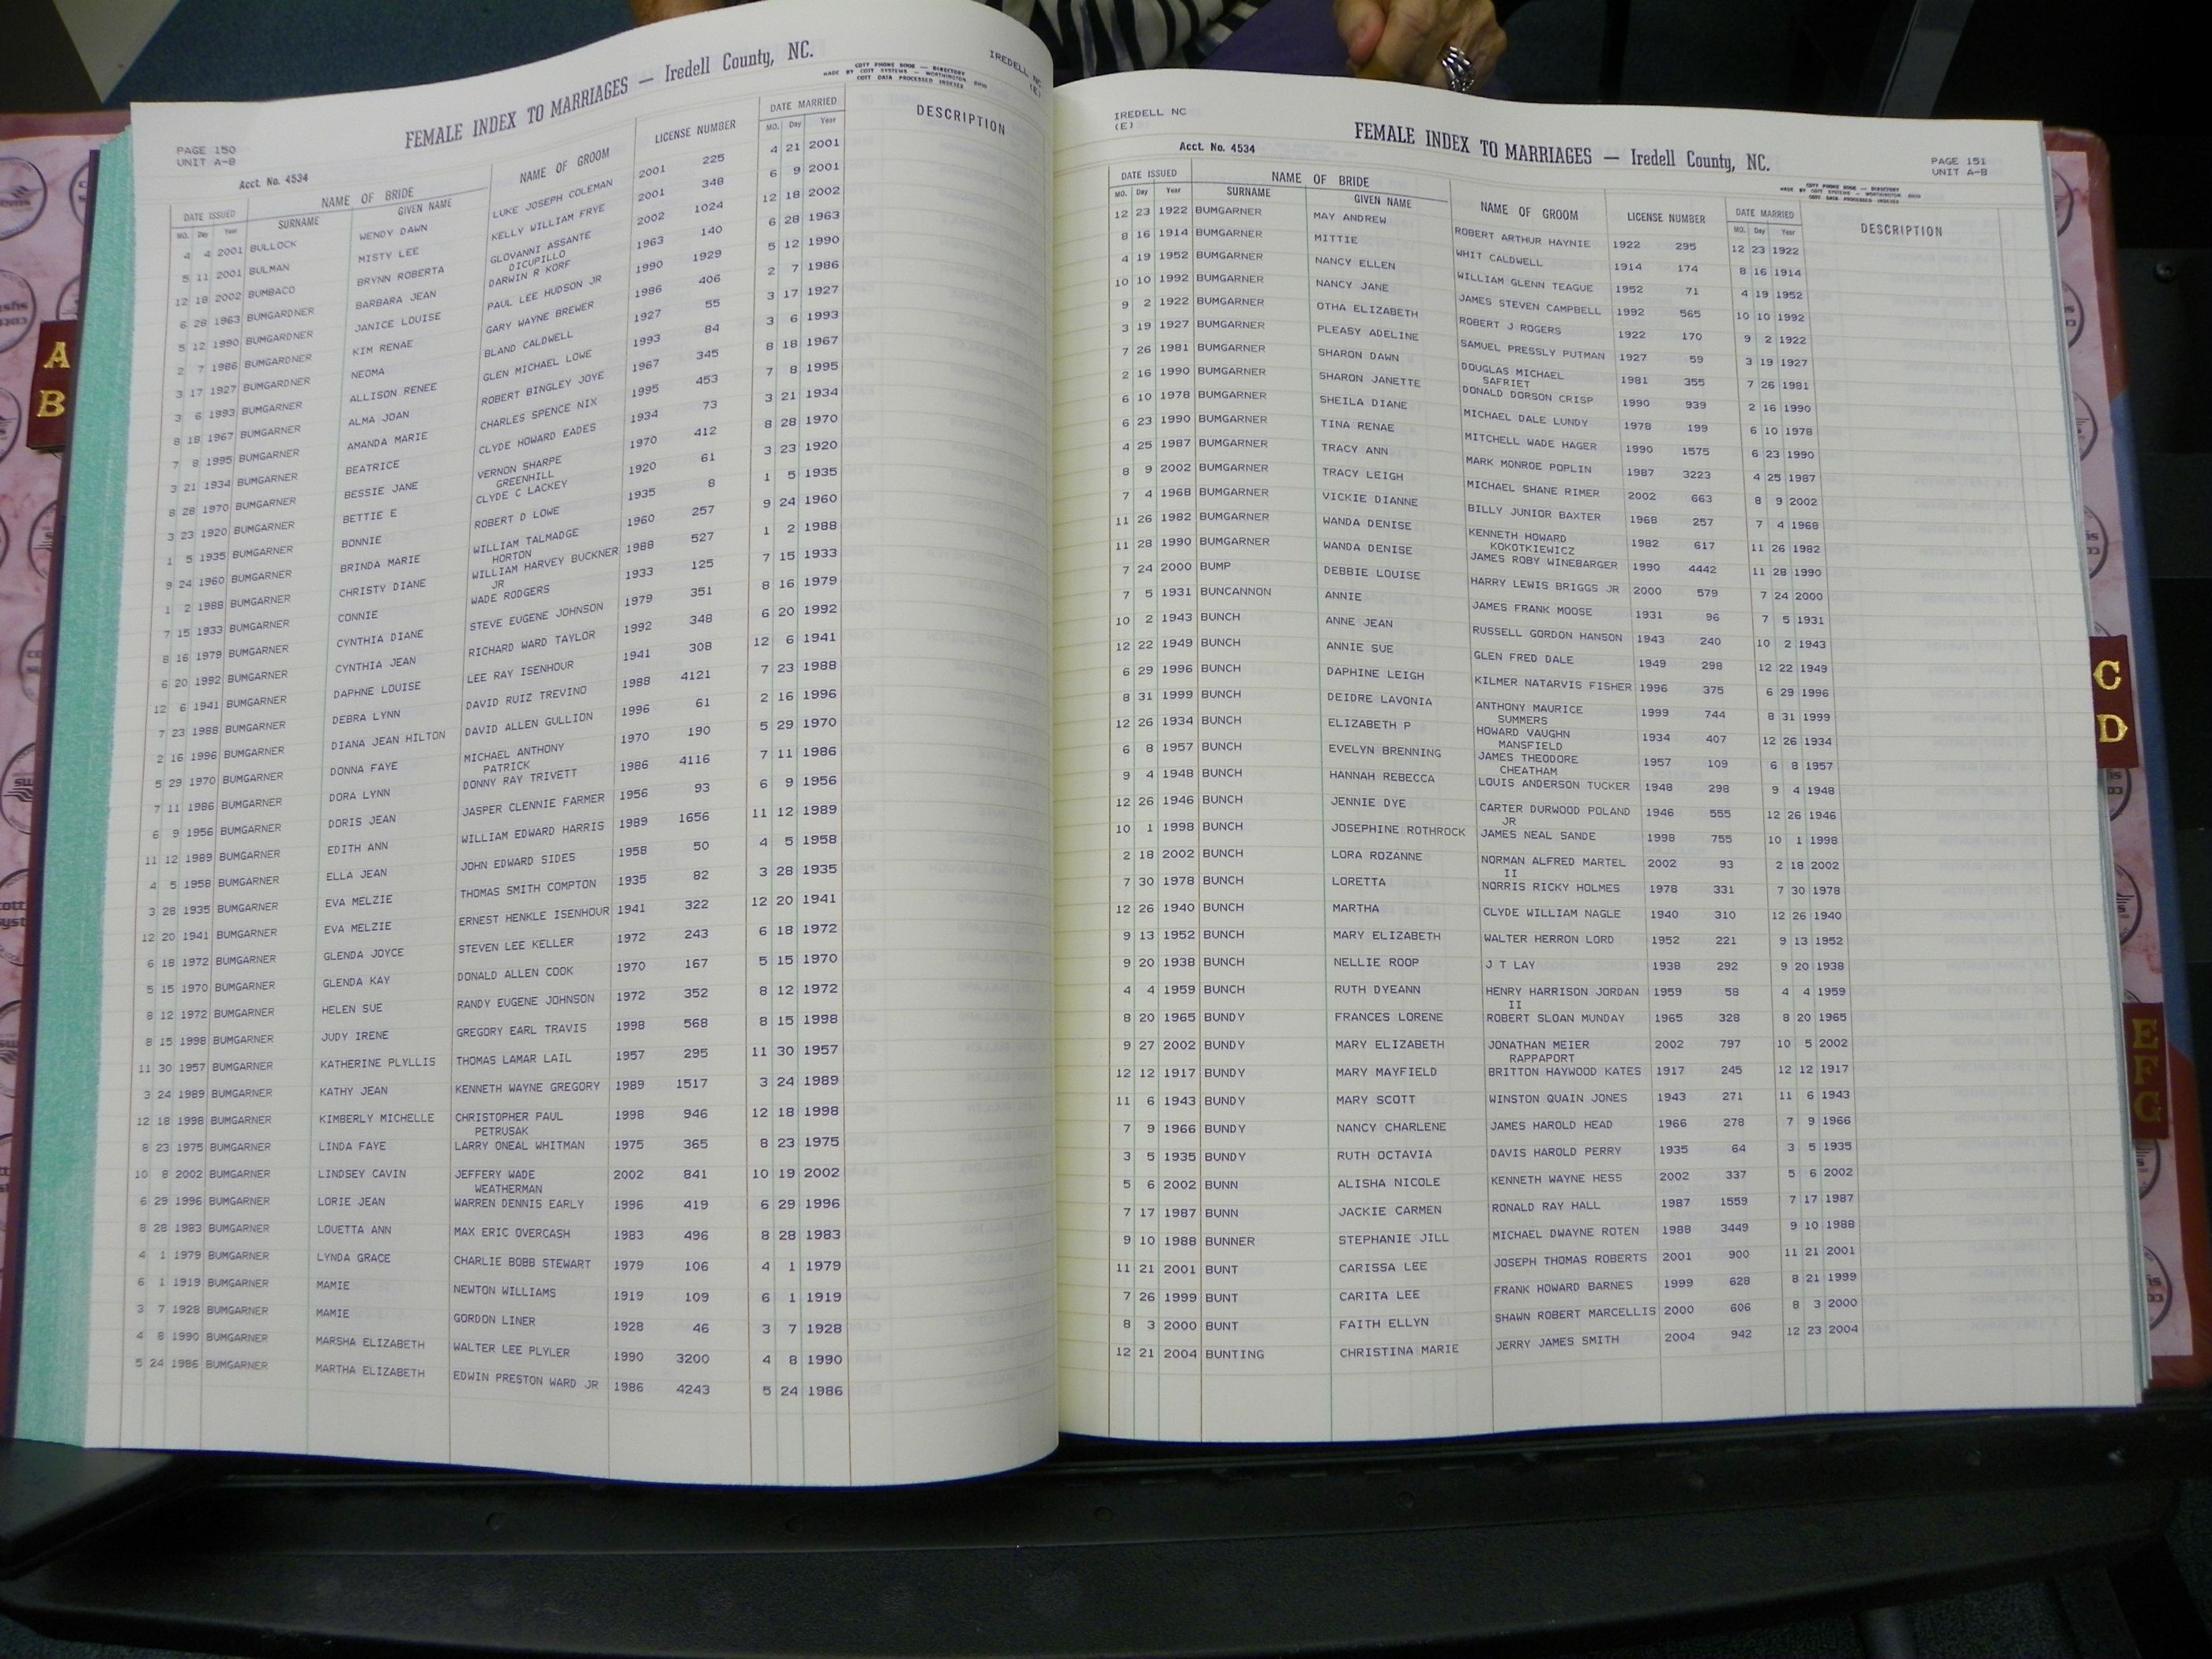 FEMALE INDEX TO MARRIAGES — Iredell County, NC.
COTT PHONE BOOK — DIRECTORY
MADE BY COTT SYSTEMS — WORTHINGTON OHIO
COTT DATA PROCESSED INDEXES
IREDELL NC
(E)
PAGE 150
UNIT A-B
Acct. No. 4534
DATE ISSUED NAME OF BRIDE NAME OF GROOM LICENSE NUMBER DATE MARRIED DESCRIPTION
MO. Day Year SURNAME GIVEN NAME MO. Day Year
4 4 2001 BULLOCK WENDY DAWN LUKE JOSEPH COLEMAN 2001 225 4 21 2001
5 11 2001 BULMAN MISTY LEE KELLY WILLIAM FRYE 2001 348 6 9 2001
12 18 2002 BUMBACO BRYNN ROBERTA GLOVANNI ASSANTE 2002 1024 12 18 2002
DICUPILLO
6 28 1963 BUMGARDNER BARBARA JEAN DARWIN R KORF 1963 140 6 28 1963
5 12 1990 BUMGARDNER JANICE LOUISE PAUL LEE HUDSON JR 1990 1929 5 12 1990
2 7 1986 BUMGARDNER KIM RENAE GARY WAYNE BREWER 1986 406 2 7 1986
3 17 1927 BUMGARDNER NEOMA BLAND CALDWELL 1927 55 3 17 1927
3 6 1993 BUMGARNER ALLISON RENEE GLEN MICHAEL LOWE 1993 84 3 6 1993
8 18 1967 BUMGARNER ALMA JOAN ROBERT BINGLEY JOYE 1967 345 8 18 1967
7 8 1995 BUMGARNER AMANDA MARIE CHARLES SPENCE NIX 1995 453 7 8 1995
3 21 1934 BUMGARNER BEATRICE CLYDE HOWARD EADES 1934 73 3 21 1934
8 28 1970 BUMGARNER BESSIE JANE VERNON SHARPE 1970 412 8 28 1970
GREENHILL
3 23 1920 BUMGARNER BETTIE E CLYDE C LACKEY 1920 61 3 23 1920
1 5 1935 BUMGARNER BONNIE ROBERT D LOWE 1935 8 1 5 1935
9 24 1960 BUMGARNER BRINDA MARIE WILLIAM TALMADGE 1960 257 9 24 1960
HORTON
1 2 1988 BUMGARNER CHRISTY DIANE WILLIAM HARVEY BUCKNER 1988 527 1 2 1988
JR
7 15 1933 BUMGARNER CONNIE WADE RODGERS 1933 125 7 15 1933
8 16 1979 BUMGARNER CYNTHIA DIANE STEVE EUGENE JOHNSON 1979 351 8 16 1979
6 20 1992 BUMGARNER CYNTHIA JEAN RICHARD WARD TAYLOR 1992 348 6 20 1992
12 6 1941 BUMGARNER DAPHNE LOUISE LEE RAY ISENHOUR 1941 308 12 6 1941
7 23 1988 BUMGARNER DEBRA LYNN DAVID RUIZ TREVINO 1988 4121 7 23 1988
2 16 1996 BUMGARNER DIANA JEAN HILTON DAVID ALLEN GULLION 1996 61 2 16 1996
5 29 1970 BUMGARNER DONNA FAYE MICHAEL ANTHONY 1970 190 5 29 1970
PATRICK
7 11 1986 BUMGARNER DORA LYNN DONNY RAY TRIVETT 1986 4116 7 11 1986
6 9 1956 BUMGARNER DORIS JEAN JASPER CLENNIE FARMER 1956 93 6 9 1956
11 12 1989 BUMGARNER EDITH ANN WILLIAM EDWARD HARRIS 1989 1656 11 12 1989
4 5 1958 BUMGARNER ELLA JEAN JOHN EDWARD SIDES 1958 50 4 5 1958
3 28 1935 BUMGARNER EVA MELZIE THOMAS SMITH COMPTON 1935 82 3 28 1935
12 20 1941 BUMGARNER EVA MELZIE ERNEST HENKLE ISENHOUR 1941 322 12 20 1941
6 18 1972 BUMGARNER GLENDA JOYCE STEVEN LEE KELLER 1972 243 6 18 1972
5 15 1970 BUMGARNER GLENDA KAY DONALD ALLEN COOK 1970 167 5 15 1970
8 12 1972 BUMGARNER HELEN SUE RANDY EUGENE JOHNSON 1972 352 8 12 1972
8 15 1998 BUMGARNER JUDY IRENE GREGORY EARL TRAVIS 1998 568 8 15 1998
11 30 1957 BUMGARNER KATHERINE PLYLLIS THOMAS LAMAR LAIL 1957 295 11 30 1957
3 24 1989 BUMGARNER KATHY JEAN KENNETH WAYNE GREGORY 1989 1517 3 24 1989
12 18 1998 BUMGARNER KIMBERLY MICHELLE CHRISTOPHER PAUL 1998 946 12 18 1998
PETRUSAK
8 23 1975 BUMGARNER LINDA FAYE LARRY ONEAL WHITMAN 1975 365 8 23 1975
10 8 2002 BUMGARNER LINDSEY CAVIN JEFFERY WADE 2002 841 10 19 2002
WEATHERMAN
6 29 1996 BUMGARNER LORIE JEAN WARREN DENNIS EARLY 1996 419 6 29 1996
8 28 1983 BUMGARNER LOUETTA ANN MAX ERIC OVERCASH 1983 496 8 28 1983
4 1 1979 BUMGARNER LYNDA GRACE CHARLIE BOBB STEWART 1979 106 4 1 1979
6 1 1919 BUMGARNER MAMIE NEWTON WILLIAMS 1919 109 6 1 1919
3 7 1928 BUMGARNER MAMIE GORDON LINER 1928 46 3 7 1928
4 8 1990 BUMGARNER MARSHA ELIZABETH WALTER LEE PLYLER 1990 3200 4 8 1990
5 24 1986 BUMGARNER MARTHA ELIZABETH EDWIN PRESTON WARD JR 1986 4243 5 24 1986
IREDELL NC
(E)
FEMALE INDEX TO MARRIAGES — Iredell County, NC.
Acct. No. 4534
PAGE 151
UNIT A-B
COTT PHONE BOOK — DIRECTORY
MADE BY COTT SYSTEMS — WORTHINGTON OHIO
COTT DATA PROCESSED INDEXES
DATE ISSUED NAME OF BRIDE NAME OF GROOM LICENSE NUMBER DATE MARRIED DESCRIPTION
MO. Day Year SURNAME GIVEN NAME MO. Day Year
12 23 1922 BUMGARNER MAY ANDREW ROBERT ARTHUR HAYNIE 1922 295 12 23 1922
8 16 1914 BUMGARNER MITTIE WHIT CALDWELL 1914 174 8 16 1914
4 19 1952 BUMGARNER NANCY ELLEN WILLIAM GLENN TEAGUE 1952 71 4 19 1952
10 10 1992 BUMGARNER NANCY JANE JAMES STEVEN CAMPBELL 1992 565 10 10 1992
9 2 1922 BUMGARNER OTHA ELIZABETH ROBERT J ROGERS 1922 170 9 2 1922
3 19 1927 BUMGARNER PLEASY ADELINE SAMUEL PRESSLY PUTMAN 1927 59 3 19 1927
7 26 1981 BUMGARNER SHARON DAWN DOUGLAS MICHAEL 1981 355 7 26 1981
SAFRIET
2 16 1990 BUMGARNER SHARON JANETTE DONALD DORSON CRISP 1990 939 2 16 1990
6 10 1978 BUMGARNER SHEILA DIANE MICHAEL DALE LUNDY 1978 199 6 10 1978
6 23 1990 BUMGARNER TINA RENAE MITCHELL WADE HAGER 1990 1575 6 23 1990
4 25 1987 BUMGARNER TRACY ANN MARK MONROE POPLIN 1987 3223 4 25 1987
8 9 2002 BUMGARNER TRACY LEIGH MICHAEL SHANE RIMER 2002 663 8 9 2002
7 4 1968 BUMGARNER VICKIE DIANNE BILLY JUNIOR BAXTER 1968 257 7 4 1968
11 26 1982 BUMGARNER WANDA DENISE KENNETH HOWARD 1982 617 11 26 1982
KOKOTKIEWICZ
11 28 1990 BUMGARNER WANDA DENISE JAMES ROBY WINEBARGER 1990 4442 11 28 1990
7 24 2000 BUMP DEBBIE LOUISE HARRY LEWIS BRIGGS JR 2000 579 7 24 2000
7 5 1931 BUNCANNON ANNIE JAMES FRANK MOOSE 1931 96 7 5 1931
10 2 1943 BUNCH ANNE JEAN RUSSELL GORDON HANSON 1943 240 10 2 1943
12 22 1949 BUNCH ANNIE SUE GLEN FRED DALE 1949 298 12 22 1949
6 29 1996 BUNCH DAPHINE LEIGH KILMER NATARVIS FISHER 1996 375 6 29 1996
8 31 1999 BUNCH DEIDRE LAVONIA ANTHONY MAURICE 1999 744 8 31 1999
SUMMERS
12 26 1934 BUNCH ELIZABETH P HOWARD VAUGHN 1934 407 12 26 1934
MANSFIELD
6 8 1957 BUNCH EVELYN BRENNING JAMES THEODORE 1957 109 6 8 1957
CHEATHAM
9 4 1948 BUNCH HANNAH REBECCA LOUIS ANDERSON TUCKER 1948 298 9 4 1948
12 26 1946 BUNCH JENNIE DYE CARTER DURWOOD POLAND 1946 555 12 26 1946
JR
10 1 1998 BUNCH JOSEPHINE ROTHROCK JAMES NEAL SANDE 1998 755 10 1 1998
2 18 2002 BUNCH LORA ROZANNE NORMAN ALFRED MARTEL 2002 93 2 18 2002
II
7 30 1978 BUNCH LORETTA NORRIS RICKY HOLMES 1978 331 7 30 1978
12 26 1940 BUNCH MARTHA CLYDE WILLIAM NAGLE 1940 310 12 26 1940
9 13 1952 BUNCH MARY ELIZABETH WALTER HERRON LORD 1952 221 9 13 1952
9 20 1938 BUNCH NELLIE ROOP J T LAY 1938 292 9 20 1938
4 4 1959 BUNCH RUTH DYEANN HENRY HARRISON JORDAN 1959 58 4 4 1959
II
8 20 1965 BUNDY FRANCES LORENE ROBERT SLOAN MUNDAY 1965 328 8 20 1965
9 27 2002 BUNDY MARY ELIZABETH JONATHAN MEIER 2002 797 10 5 2002
RAPPAPORT
12 12 1917 BUNDY MARY MAYFIELD BRITTON HAYWOOD KATES 1917 245 12 12 1917
11 6 1943 BUNDY MARY SCOTT WINSTON QUAIN JONES 1943 271 11 6 1943
7 9 1966 BUNDY NANCY CHARLENE JAMES HAROLD HEAD 1966 278 7 9 1966
3 5 1935 BUNDY RUTH OCTAVIA DAVIS HAROLD PERRY 1935 64 3 5 1935
5 6 2002 BUNN ALISHA NICOLE KENNETH WAYNE HESS 2002 337 5 6 2002
7 17 1987 BUNN JACKIE CARMEN RONALD RAY HALL 1987 1559 7 17 1987
9 10 1988 BUNNER STEPHANIE JILL MICHAEL DWAYNE ROTEN 1988 3449 9 10 1988
11 21 2001 BUNT CARISSA LEE JOSEPH THOMAS ROBERTS 2001 900 11 21 2001
7 26 1999 BUNT CARITA LEE FRANK HOWARD BARNES 1999 628 8 21 1999
8 3 2000 BUNT FAITH ELLYN SHAWN ROBERT MARCELLIS 2000 606 8 3 2000
12 21 2004 BUNTING CHRISTINA MARIE JERRY JAMES SMITH 2004 942 12 23 2004
A
B
C
D
E
F
G